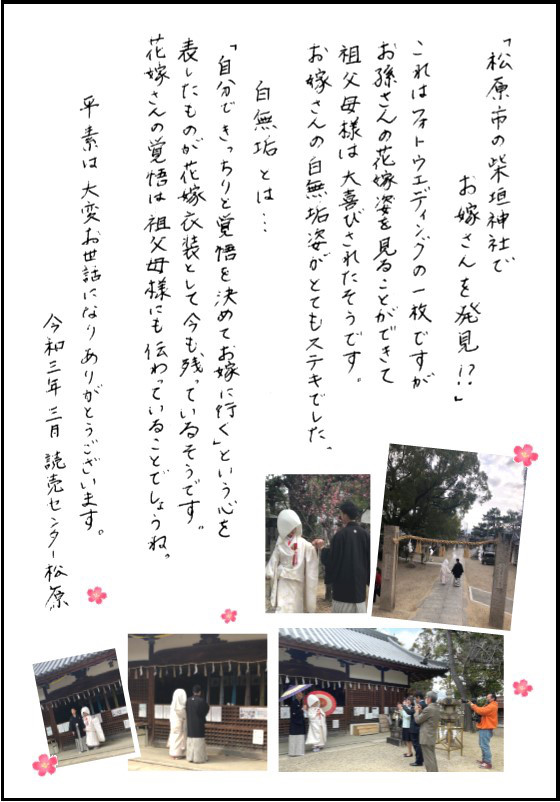 「松原市の柴垣神社で
お嫁さんを発見!?」
これはフォトウエディングの一枚ですが
お孫さんの花嫁姿を見ることができて
祖父母様は大喜びされたそうです。
お嫁さんの白無垢姿がとてもステキでした。
白無垢とは…
「自分できっちりと覚悟を決めてお嫁に行く」という心を
表したものが花嫁衣装として今も残っているそうです。
花嫁さんの覚悟は祖父母様にも伝わっていることでしょうね。
平素は大変お世話になりありがとうございます。
令和三年三月 読売センター松原